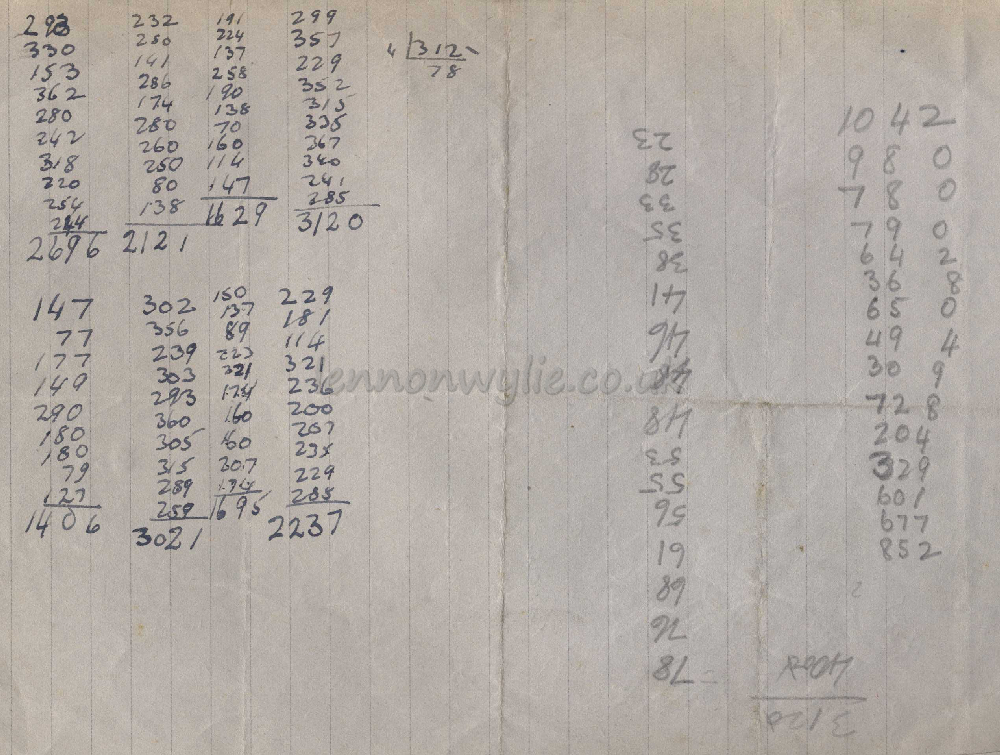 293
330
153
362
280
242
318
220
254
244
2696
232
280
141
286
174
280
260
250
80
138
2121
191
224
137
258
190
138
70
160
114
147
1629
299
357
229
352
315
335
367
340
241
285
3120
4 312
78
147
77
177
149
290
180
180
79
127
1406
302
356
239
303
293
360
305
315
289
259
3021
150
137
89
223
321
124
160
160
207
124
1695
229
181
114
321
236
200
207
235
229
285
2237
lennonwylie.co.uk
3120
= 78
76
68
61
56
55
53
48
48
46
41
38
35
33
28
23
10 42
9 8 0
7 8 0
7 9 0
64 2
36 8
65 0
49 4
30 9
72 8
204
329
601
677
852